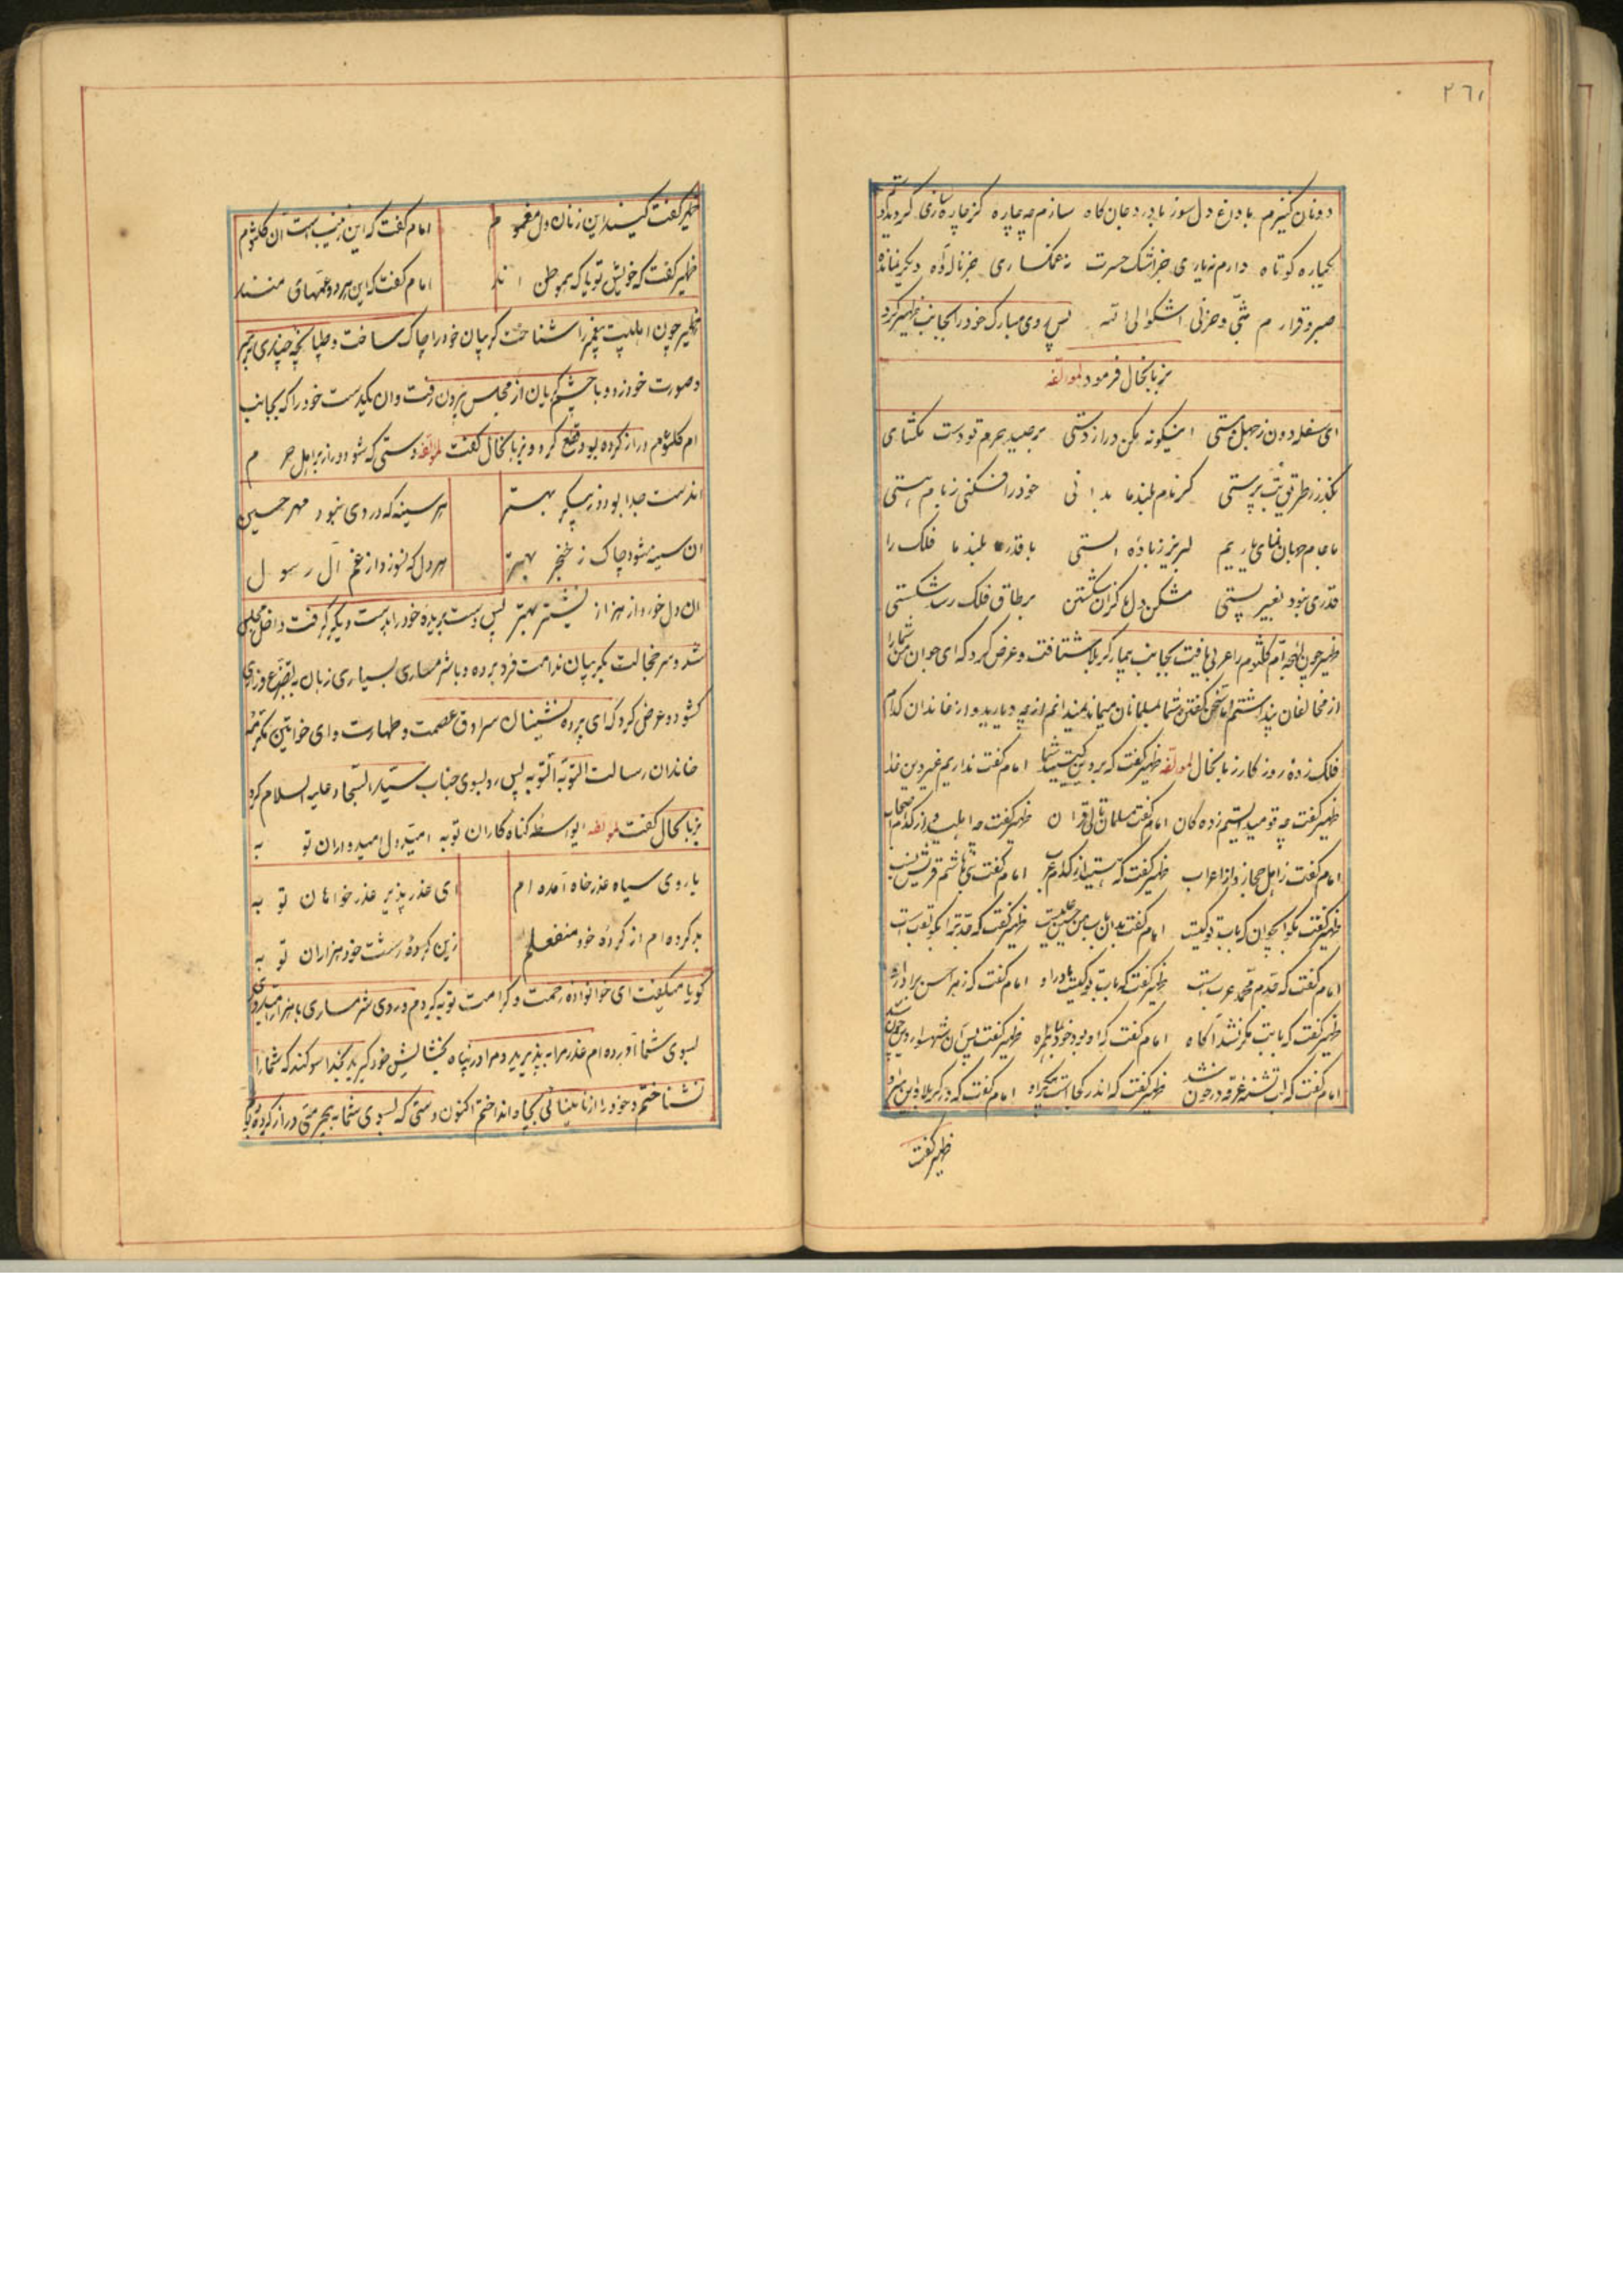 ٢٦١
دونان کنیزم با داغ دل سوز با درد جان کاه سازم چه چاره کز چاره سازی گردیده
یکباره کوتاه دارم نه یاری جز اشک حسرت نه غمگساری جز ناله و آه دیگر نمانده
صبر و قرارم بثّی و حزنی اشکوا الی الله پس روی مبارک خود را بجانب ظهیر کرد
بزبانحال فرمود لمؤلفه
ای سفله دون ز جهل و مستی اینگونه مکن دراز دستی بر صید حرم تو دست مگشای
بگذر ز طریق بت پرستی گر نام بلند ما بدانی خود را فکنی ز بام هستی
ما جام جهان نمای یاریم لبریز ز بادهٔ الستی با قدر بلند ما فلک را
قدری نبود بغیر پستی مشکن دل ما کزان شکستن بر طاق فلک رسد شکستی
ظهیر چون لهجه ام کلثوم را عربی یافت بجانب بیمار کربلا شتافت و عرض کرد که ای جوان من شما را
از مخالفان پنداشتم اما سخن گفتن شما بمسلمانان میماند نمیدانم از چه دیارید و از خاندان کدام
فلک زده روزکار بزبانحال لمؤلفه ظهیر گفت که بر دین کیستید شما امام گفت نداریم غیر دین خدا
ظهیر گفت چه قومید ای ستم زده کان امام گفت مسلمان تالی قرآن ظهیر گفت چه اهلید و از کدام
امام گفت ز اهل حجاز و از اعراب ظهیر گفت که هستید از کدام عرب امام گفت بنی هاشم قریش نسب
ظهیر گفت بگو ایجوان که باب تو کیست امام گفت بدان باب من حسین علیست ظهیر گفت که جد تو را بگو لقب است
امام گفت که جدم محمد عرب است ظهیر گفت که باب تو کیست مادر او امام گفت که زهرا حسن برادر او
ظهیر گفت که بابت مگر نشد آکاه امام گفت که او بود خود بما همراه ظهیر گفت پس آن شهسوار دین چون شد
امام گفت که لب تشنه غرقه در خون شد ظهیر گفت که اندر کجاست پیکر او امام گفت که در کربلا و این سر او
ظهیر گفت
ظهیر گفت کیند این زنان دل مغموم امام گفت که این زینب است آن کلثوم
ظهیر گفت که خویش تو یا که هموطن اند امام گفت که این هر دو عمهای منند
ظهیر چون اهلبیت پیغمبر را شناخت گریبان خود را چاک ساخت و طپانچه چندی بر سر
و صورت خود زد و با چشم گریان از مجلس بیرون رفت و ان یکدست خود را که بجانب
ام کلثوم دراز کرده بود قطع کرد و بزبانحال گفت لمؤلفه دستی که شود دراز بر اهل حرم
اندست جدا بود ز پیکر بهتر هر سینه که در وی نبود مهر حسین
ان سینه شود چاک ز خنجر بهتر هر دل که نسوزد از غم آل رسول
ان دل خورد از هزار نشتر بهتر پس دست بریده خود را بدست دیگر گرفت داخل مجلس
شد و سر خجالت بگریبان ندامت فرو برده و با شرمساری بسیاری زبان بتضرع و زاری
کشود و عرض کرد که ای پرده نشینان سرادق عصمت و طهارت و ای خواتین مکرمه
خاندان رسالت التوبه التوبه پس رو بسوی جناب سید السجاد علیه السلام کرد
بزبانحال گفت لمؤلفه ایواسطه کناه کاران توبه امید دل امیدواران توبه
با روی سیاه عذر خواه آمده ام ای عذر پذیر عذر خواهان توبه
بد کرده ام از کرده خود منفعلم زین کردهٔ زشت خود هزاران توبه
کویا میگفت ای خوانواده رحمت و کرامت توبه کردم و روی شرمساری با هزار امیدواری
بسوی شما آورده ام عذر مرا بپذیرید و مرا در پناه بخشایش خود گیرید بخدا سوکند که شما را
نشناختم و خود را از نابینائی بچاه انداختم اکنون دستی که بسوی شما به بیحرمتی دراز کرده بود